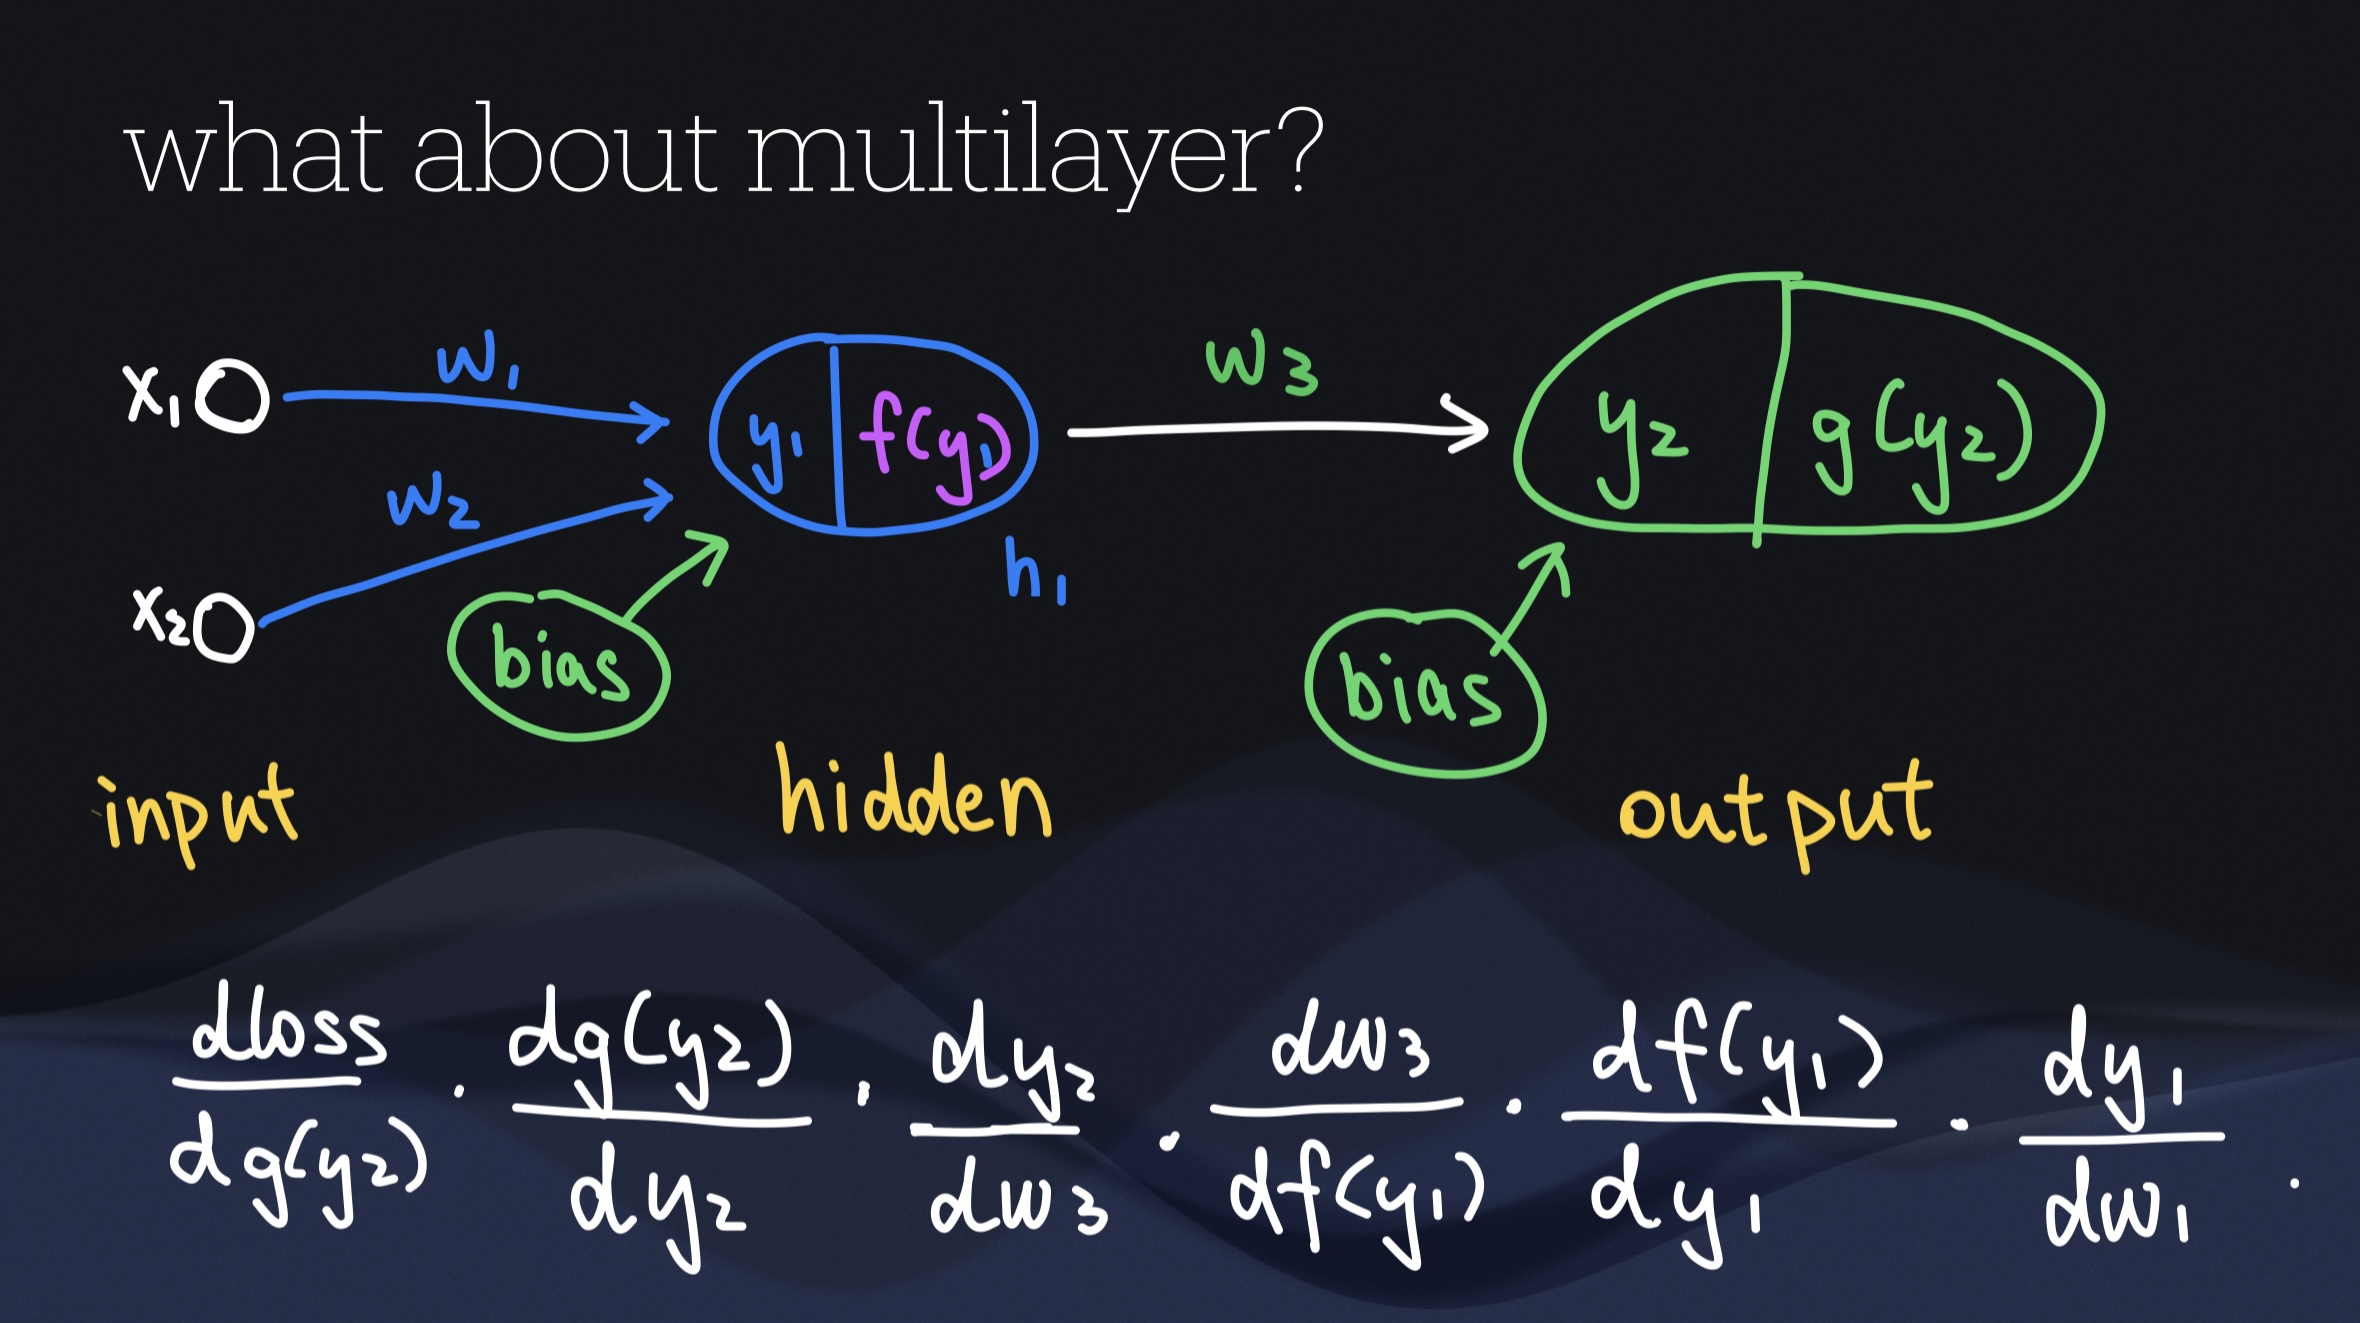 what about multilayer?
x₁ w₁ y₁ f(y₁) w₃ y₂ g(y₂)
w₂
x₂ bias h₁ bias
input hidden output
dloss/dg(y₂) · dg(y₂)/dy₂ · dy₂/dw₃ · dw₃/df(y₁) · df(y₁)/dy₁ · dy₁/dw₁ .